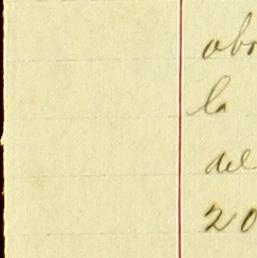 obr
la
del
20